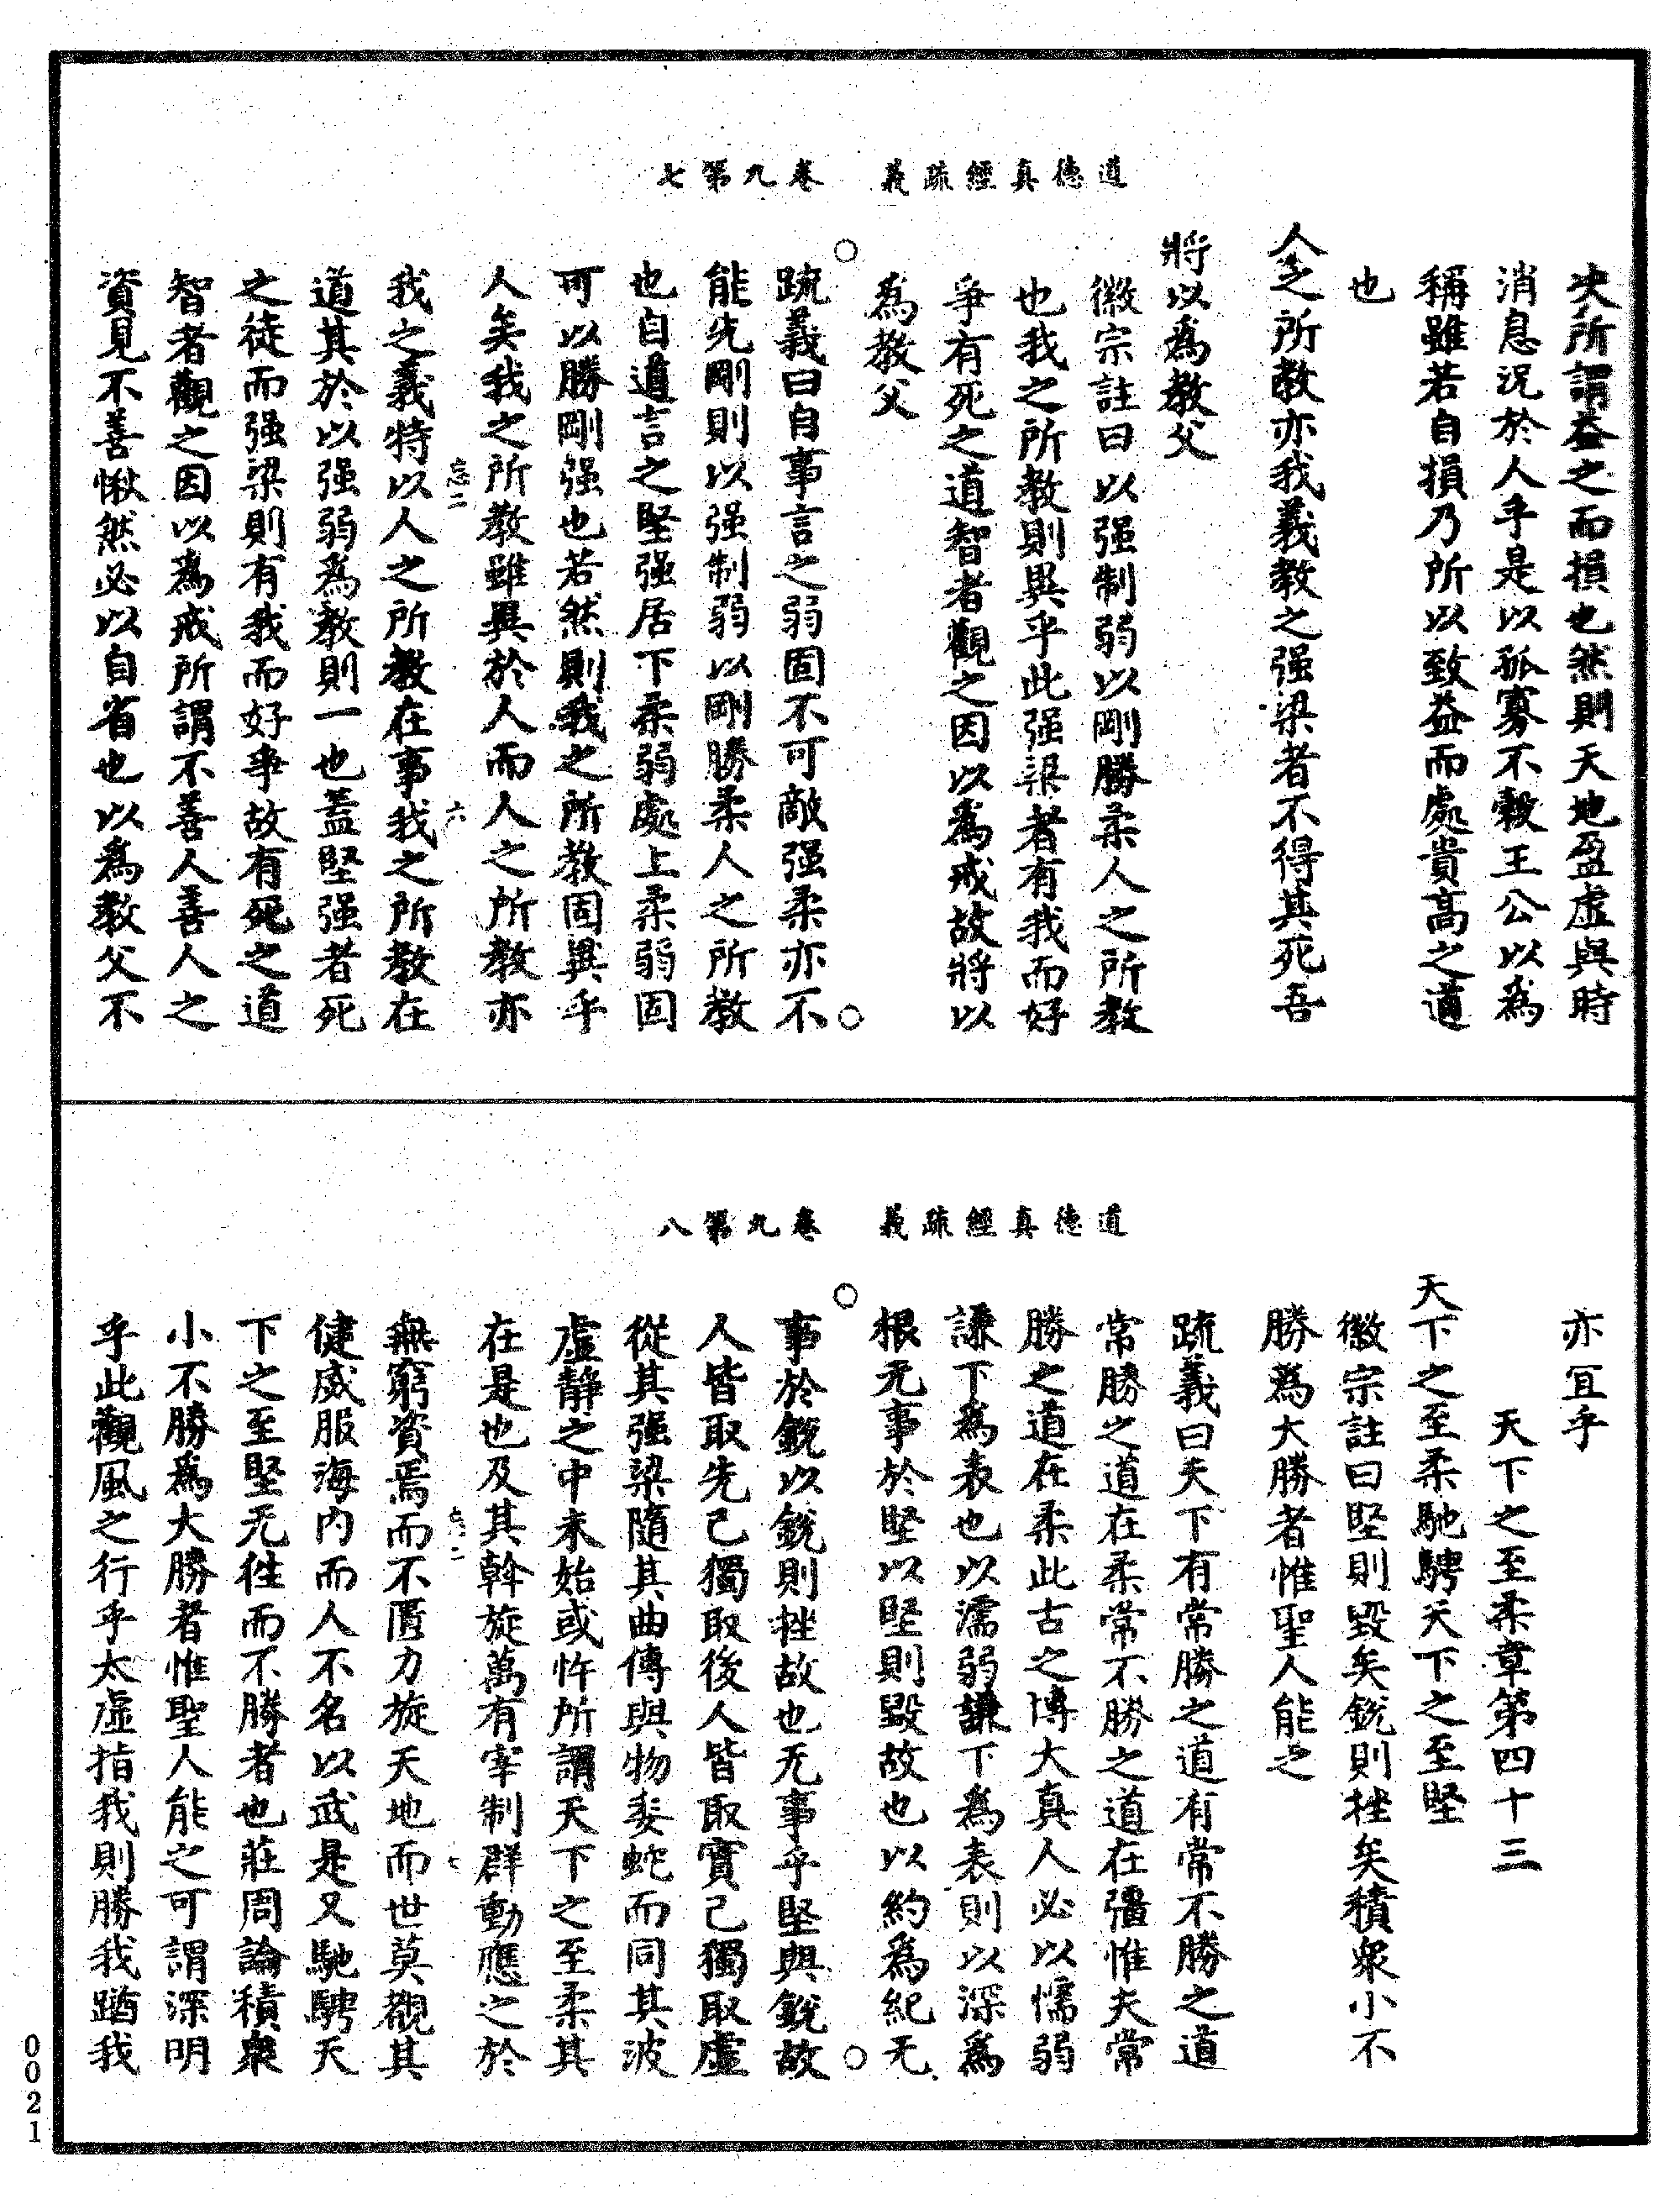 道德真經疏義　卷九第七
夬所謂益之而損也然則天地盈虛與時
消息況於人乎是以孤寡不穀王公以為
稱雖若自損乃所以致益而處貴高之道
也
人之所教亦我義教之强梁者不得其死吾
將以為教父
徽宗註曰以强制弱以剛勝柔人之所教
也我之所教則異乎此强梁者有我而好
爭有死之道智者觀之因以為戒故將以
為教父
疏義曰自事言之弱固不可敵强柔亦不
能先剛則以强制弱以剛勝柔人之所教
也自道言之堅强居下柔弱處上柔弱固
可以勝剛强也若然則我之所教固異乎
人矣我之所教雖異於人而人之所教亦
忘二　六
我之義特以人之所教在事我之所教在
道其於以强弱為教則一也蓋堅强者死
之徒而强梁則有我而好爭故有死之道
智者觀之因以為戒所謂不善人善人之
資見不善愀然必以自省也以為教父不
道德真經疏義　卷九第八
亦冝乎
天下之至柔章第四十三
天下之至柔馳騁天下之至堅
徽宗註曰堅則毀矣銳則挫矣積衆小不
勝為大勝者惟聖人能之
疏義曰天下有常勝之道有常不勝之道
常勝之道在柔常不勝之道在彊惟夫常
勝之道在柔此古之博大真人必以懦弱
謙下為表也以濡弱謙下為表則以深為
根无事於堅以堅則毀故也以約為紀无
事於銳以銳則挫故也无事乎堅與銳故
人皆取先己獨取後人皆取實己獨取虛
從其强梁隨其曲傳與物委蛇而同其波
虛靜之中未始或忤所謂天下之至柔其
在是也及其斡旋萬有宰制群動應之於
忘二　七
無窮資焉而不匱力旋天地而世莫覩其
健威服海內而人不名以武是又馳騁天
下之至堅无徃而不勝者也莊周論積衆
小不勝為大勝者惟聖人能之可謂深明
乎此觀風之行乎太虛指我則勝我蹈我
0021